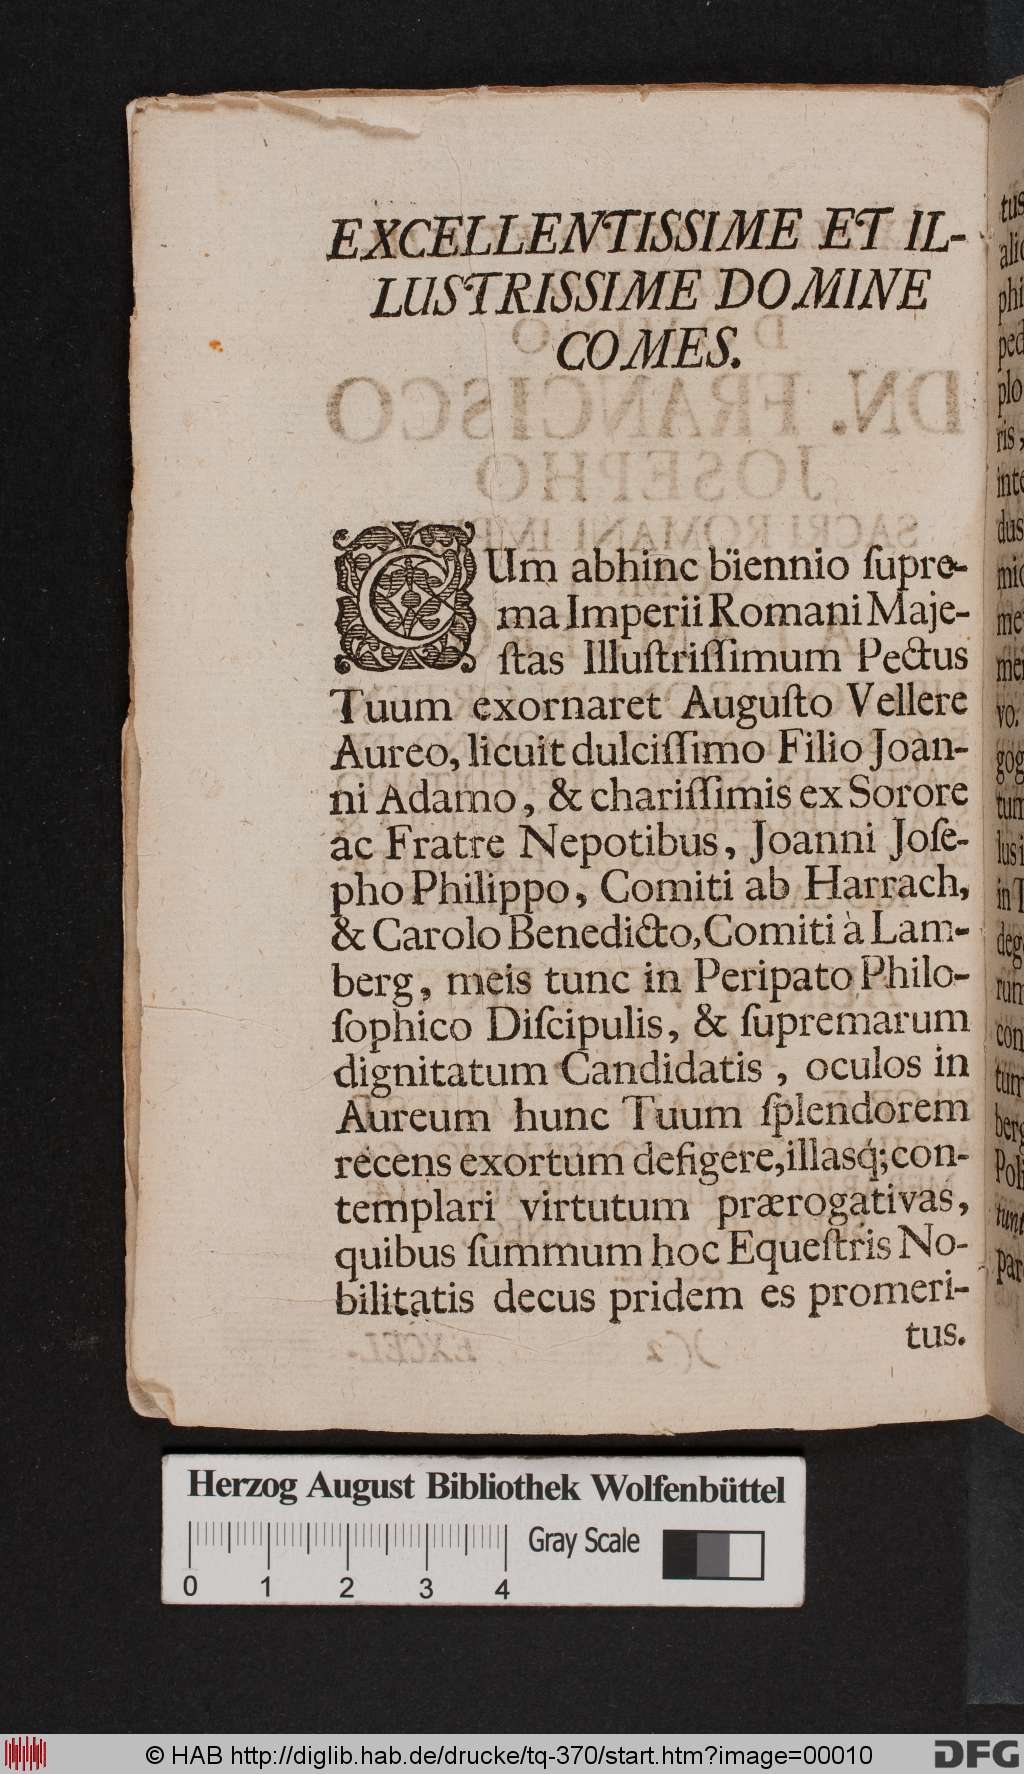 EXCELLENTISSIME ET IL-
LUSTRISSIME DOMINE
COMES.
CUm abhinc bïennio ſupre-
ma Imperii Romani Maje-
ſtas Illuſtriſſimum Pectus
Tuum exornaret Auguſto Vellere
Aureo, licuit dulciſſimo Filio Joan-
ni Adamo, & chariſſimis ex Sorore
ac Fratre Nepotibus, Joanni Joſe-
pho Philippo, Comiti ab Harrach,
& Carolo Benedicto, Comiti à Lam-
berg, meis tunc in Peripato Philo-
ſophico Diſcipulis, & ſupremarum
dignitatum Candidatis, oculos in
Aureum hunc Tuum ſplendorem
recens exortum defigere, illasq́; con-
templari virtutum prærogativas,
quibus ſummum hoc Equeſtris No-
bilitatis decus pridem es promeri-
tus.
Herzog August Bibliothek Wolfenbüttel
Gray Scale
0 1 2 3 4
© HAB http://diglib.hab.de/drucke/tq-370/start.htm?image=00010
DFG